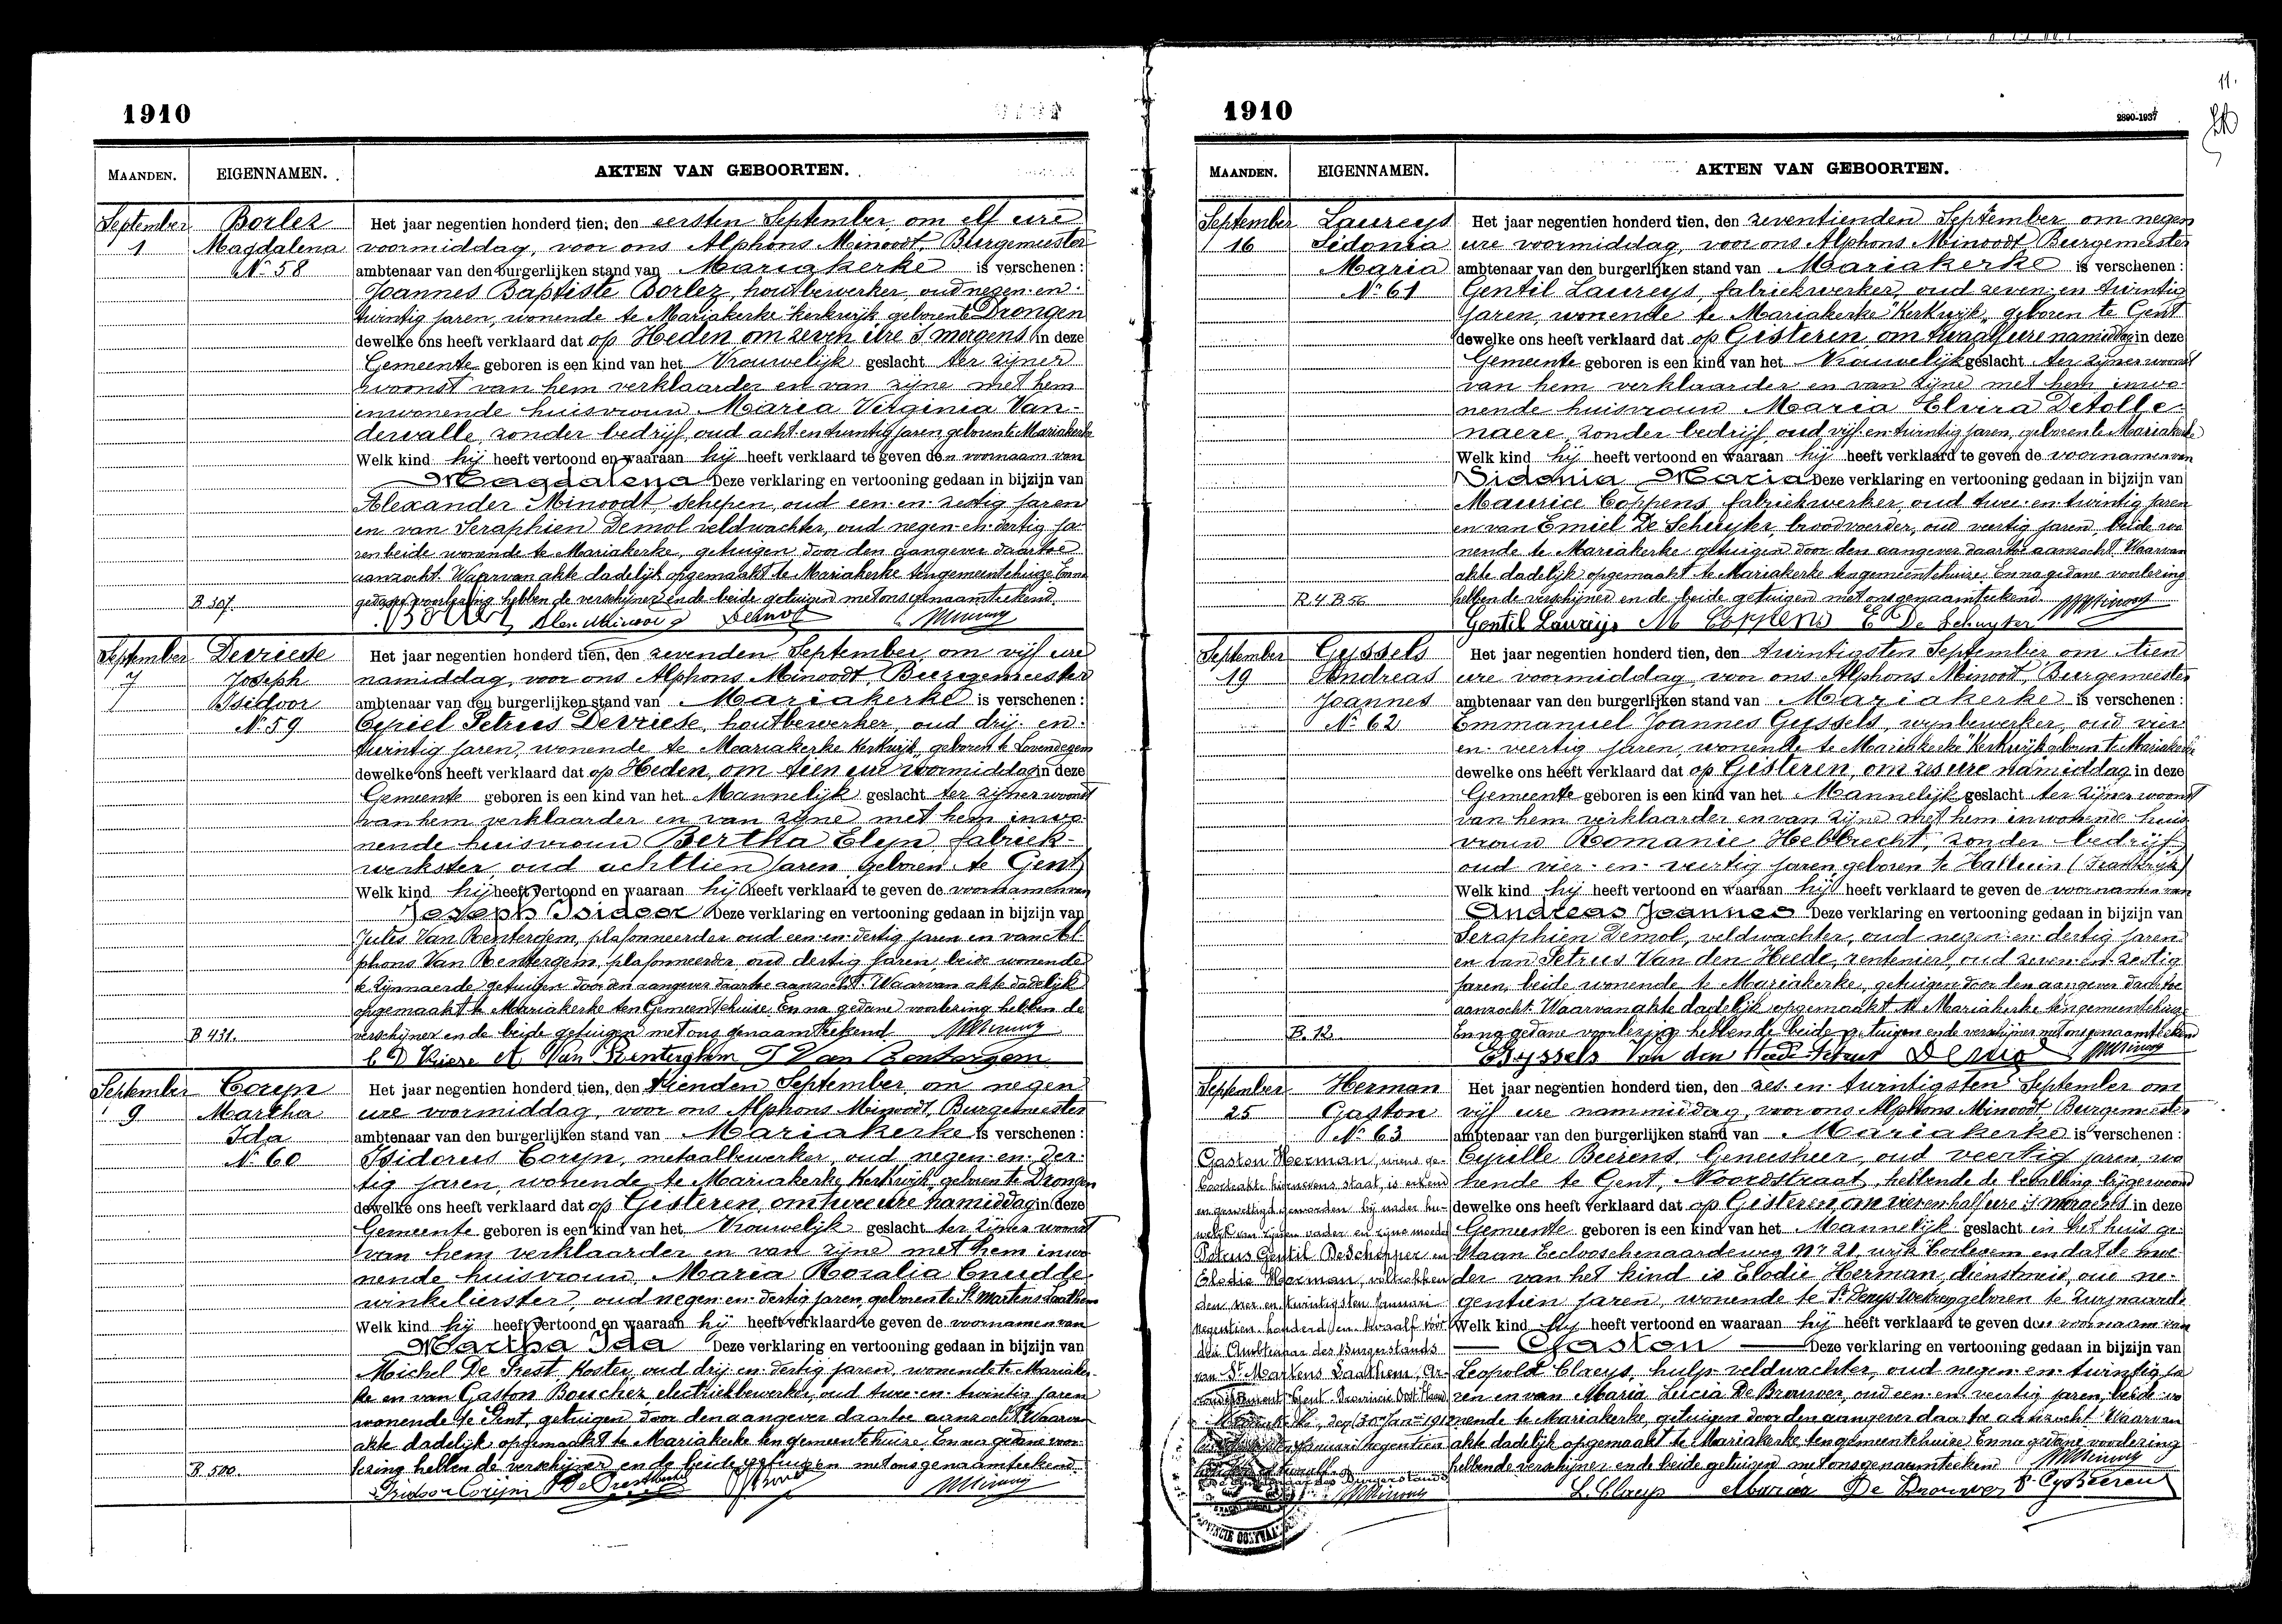 1910
MAANDEN. EIGENNAMEN. AKTEN VAN GEBOORTEN.
September 1
Borlez
Magdalena
N° 58
B 307.
Het jaar negentien honderd tien, den eersten September, om elf ure
voormiddag, voor ons Alphons Minoodt, Burgemeester
ambtenaar van den burgerlijken stand van Mariakerke is verschenen:
Joannes Baptiste Borlez, houtbewerker, oud negen-en-
twintig jaren, wonende te Mariakerke kerkwijk, geboren te Drongen
dewelke ons heeft verklaard dat op Heden om zeven ure 's morgens in deze
Gemeente geboren is een kind van het Vrouwelijk geslacht ter zijner
woonst van hem verklaarder en van zijne met hem
inwonende huisvrouw Maria Virginia Van-
dewalle, zonder bedrijf, oud acht-en-twintig jaren, geboren te Mariakerke
Welk kind hij heeft vertoond en waaraan hij heeft verklaard te geven den voornaam van
Magdalena Deze verklaring en vertooning gedaan in bijzijn van
Alexander Minoodt, schepen, oud een-en-zestig jaren
en van Seraphien Demol veldwachter, oud negen-en-dertig ja-
ren beide wonende te Mariakerke, getuigen door den aangever daartoe
aanzocht. Waarvan akte dadelijk opgemaakt te Mariakerke ten gemeentehuize. En na
gedane voorlezing hebben de verschijner en de beide getuigen met ons genaamteekend.
Borlez Alex Minoodt Demol
September 7
Devriese
Joseph
Isidoor
N° 59
B 431.
Het jaar negentien honderd tien, den zevenden September, om vijf ure
namiddag, voor ons Alphons Minoodt, Burgemeester
ambtenaar van den burgerlijken stand van Mariakerke is verschenen:
Cyriel Petrus Devriese, houtbewerker, oud drij-en-
twintig jaren, wonende te Mariakerke Kerkwijk, geboren te Lovendegem
dewelke ons heeft verklaard dat op Heden, om tien ure voormiddag in deze
Gemeente geboren is een kind van het Mannelijk geslacht ter zijner woonst
van hem verklaarder en van zijne met hem inwo-
nende huisvrouw Bertha Elyn, fabriek-
werkster, oud achttien jaren, geboren te Gent
Welk kind hij heeft vertoond en waaraan hij heeft verklaard te geven de voornamen van
Joseph Isidoor Deze verklaring en vertooning gedaan in bijzijn van
Jules Van Rentergem, plafonneerder oud een-en-dertig jaren en van Al-
phons Van Rentergem, plafonneerder, oud dertig jaren, beide wonende
te Zijnnaerde, getuigen door den aangever daartoe aanzocht. Waarvan akte dadelijk
opgemaakt te Mariakerke ten Gemeentehuize. En na gedane voorlezing hebben de
verschijner en de beide getuigen met ons genaamteekend.
C D Vriese A. Van Renterghem J Van Rentergem
September 9
Coryn
Martha
Ida
N° 60
B. 500.
Het jaar negentien honderd tien, den tienden September, om negen
ure voormiddag, voor ons Alphons Minoodt, Burgemeester
ambtenaar van den burgerlijken stand van Mariakerke is verschenen:
Isidorus Coryn, metaalbewerker, oud negen-en-der-
tig jaren, wonende te Mariakerke Kerkwijk, geboren te Drongen
dewelke ons heeft verklaard dat op Gisteren, om twee ure namiddag in deze
Gemeente geboren is een kind van het Vrouwelijk geslacht ter zijner woonst
van hem verklaarder en van zijne met hem inwo-
nende huisvrouw Maria Rosalia Cnudde,
winkelierster, oud negen-en-dertig jaren, geboren te St Martens Laathem
Welk kind hij heeft vertoond en waaraan hij heeft verklaard te geven de voornamen van
Martha Ida Deze verklaring en vertooning gedaan in bijzijn van
Michel De Prest, Koster, oud drij-en-dertig jaren, wonende te Mariaker-
ke en van Gaston Bouchez, electriekbewerker, oud twee-en-twintig jaren
wonende te Gent, getuigen door den aangever daartoe aanzocht. Waarvan
akte dadelijk opgemaakt te Mariakerke ten gemeentehuize. En na gedane voor-
lezing hebben de verschijner en de beide getuigen met ons genaamteekend.
Isidoor Corijn
1910
2890-1937
11.
MAANDEN. EIGENNAMEN. AKTEN VAN GEBOORTEN.
September 16
Laureys
Sidonia
Maria
N° 61
R. 4. B 56
Het jaar negentien honderd tien, den zeventienden September, om negen
ure voormiddag, voor ons Alphons Minoodt Burgemeester
ambtenaar van den burgerlijken stand van Mariakerke is verschenen:
Gentil Laureys, fabriekwerker, oud zeven-en-twintig
jaren, wonende te Mariakerke "Kerkwijk", geboren te Gent
dewelke ons heeft verklaard dat op Gisteren, om twaalf ure namiddag in deze
Gemeente geboren is een kind van het Vrouwelijk geslacht ter zijner woonst
van hem verklaarder en van zijne met hem inwo-
nende huisvrouw Maria Elvira Detolle-
naere, zonder bedrijf, oud vijf-en-twintig jaren, geboren te Mariakerke
Welk kind hij heeft vertoond en waaraan hij heeft verklaard te geven de voornamen van
Sidonia Maria Deze verklaring en vertooning gedaan in bijzijn van
Maurice Coppens, fabriekwerker, oud twee-en-twintig jaren
en van Emiel De Schuyter, broodvoerder, oud veertig jaren, beide wo-
nende te Mariakerke getuigen door den aangever daartoe aanzocht. Waarvan
akte dadelijk opgemaakt te Mariakerke ten gemeentehuize. En na gedane voorlezing
hebben de verschijner en de beide getuigen met ons genaamteekend.
Gentil Laureys M Coppens E De Schuyter
September 19
Gyssels
Andreas
Joannes
N° 62
B. 12.
Het jaar negentien honderd tien, den twintigsten September om tien
ure voormiddag, voor ons Alphons Minoodt, Burgemeester
ambtenaar van den burgerlijken stand van Mariakerke is verschenen:
Emmanuel Joannes Gyssels, oud vier-
en-veertig jaren, wonende te Mariakerke "Kerkwijk, geboren te Mariakerke
dewelke ons heeft verklaard dat op Gisteren, om zes ure namiddag in deze
Gemeente geboren is een kind van het Mannelijk geslacht ter zijner woonst
van hem verklaarder en van zijne met hem inwonende huis-
vrouw Romanie Hebbrecht, zonder bedrijf
oud vier-en-veertig jaren, geboren te Halluin (Frankrijk)
Welk kind hij heeft vertoond en waaraan hij heeft verklaard te geven de voornamen van
Andreas Joannes Deze verklaring en vertooning gedaan in bijzijn van
Seraphien Demol, veldwachter, oud negen-en-dertig jaren
en van Petrus Van den Heede, rentenier, oud zeven-en-zestig
jaren, beide wonende te Mariakerke, getuigen door den aangever daartoe
aanzocht. Waarvan akte dadelijk opgemaakt te Mariakerke ten gemeentehuize
En na gedane voorlezing hebben de beide getuigen en de verschijner met ons genaamteekend
Gyssels Van den Demol
September 25
Herman
Gaston
N° 63
Gaston Herman, wiens ge-
boorteakte hiernevens staat, is erkend
en gewettigd geworden bij nader hu-
welijk van zijnen vader en zijne moeder
Petrus Gentil Deschepper en
Elodie Herman, voltrokken
den vier en twintigsten Januari
negentien honderd en twaalf voor
den Ambtenaar des Burgerstands
van St Martens Laathem, Ar-
rondissement Gent, Provincie Oost Vlaand.
Mariakerke, den 30 Jan. 1912
Januari negentien
Burgerstands
Het jaar negentien honderd tien, den zes-en-twintigsten September om
vijf ure nammiddag, voor ons Alphons Minoodt Burgemeester
ambtenaar van den burgerlijken stand van Mariakerke is verschenen:
Cyrille Beerens, Geneesheer, oud veertig jaren, wo-
nende te Gent, Noordstraat, hebbende de bevalling bijgewoond
dewelke ons heeft verklaard dat op Gisteren om vieren half ure 's morgens in deze
Gemeente geboren is een kind van het Mannelijk geslacht in het huis ge-
staan Eeclooschenaardeweg N° 21, wijk Borlegem en dat de moe-
der van het kind is Elodie Herman, dienstmeid, oud ne-
gentien jaren, wonende te St Denys-Westrem geboren te Zwynaarde
Welk kind hij heeft vertoond en waaraan hij heeft verklaard te geven den voornaam van
Gaston Deze verklaring en vertooning gedaan in bijzijn van
Leopold Claeys, hulp-veldwachter, oud negen-en-twintig ja-
ren en van Maria Lucia De Brouwer, oud een-en-veertig jaren, beide wo-
nende te Mariakerke, getuigen door den aangever daartoe aanzocht. Waarvan
akte dadelijk opgemaakt te Mariakerke ten gemeentehuize En na gedane voorlezing
hebben de verschijner en de beide getuigen met ons genaamteekend
L. Claeys Maria De Brouwer Cyr Beerens